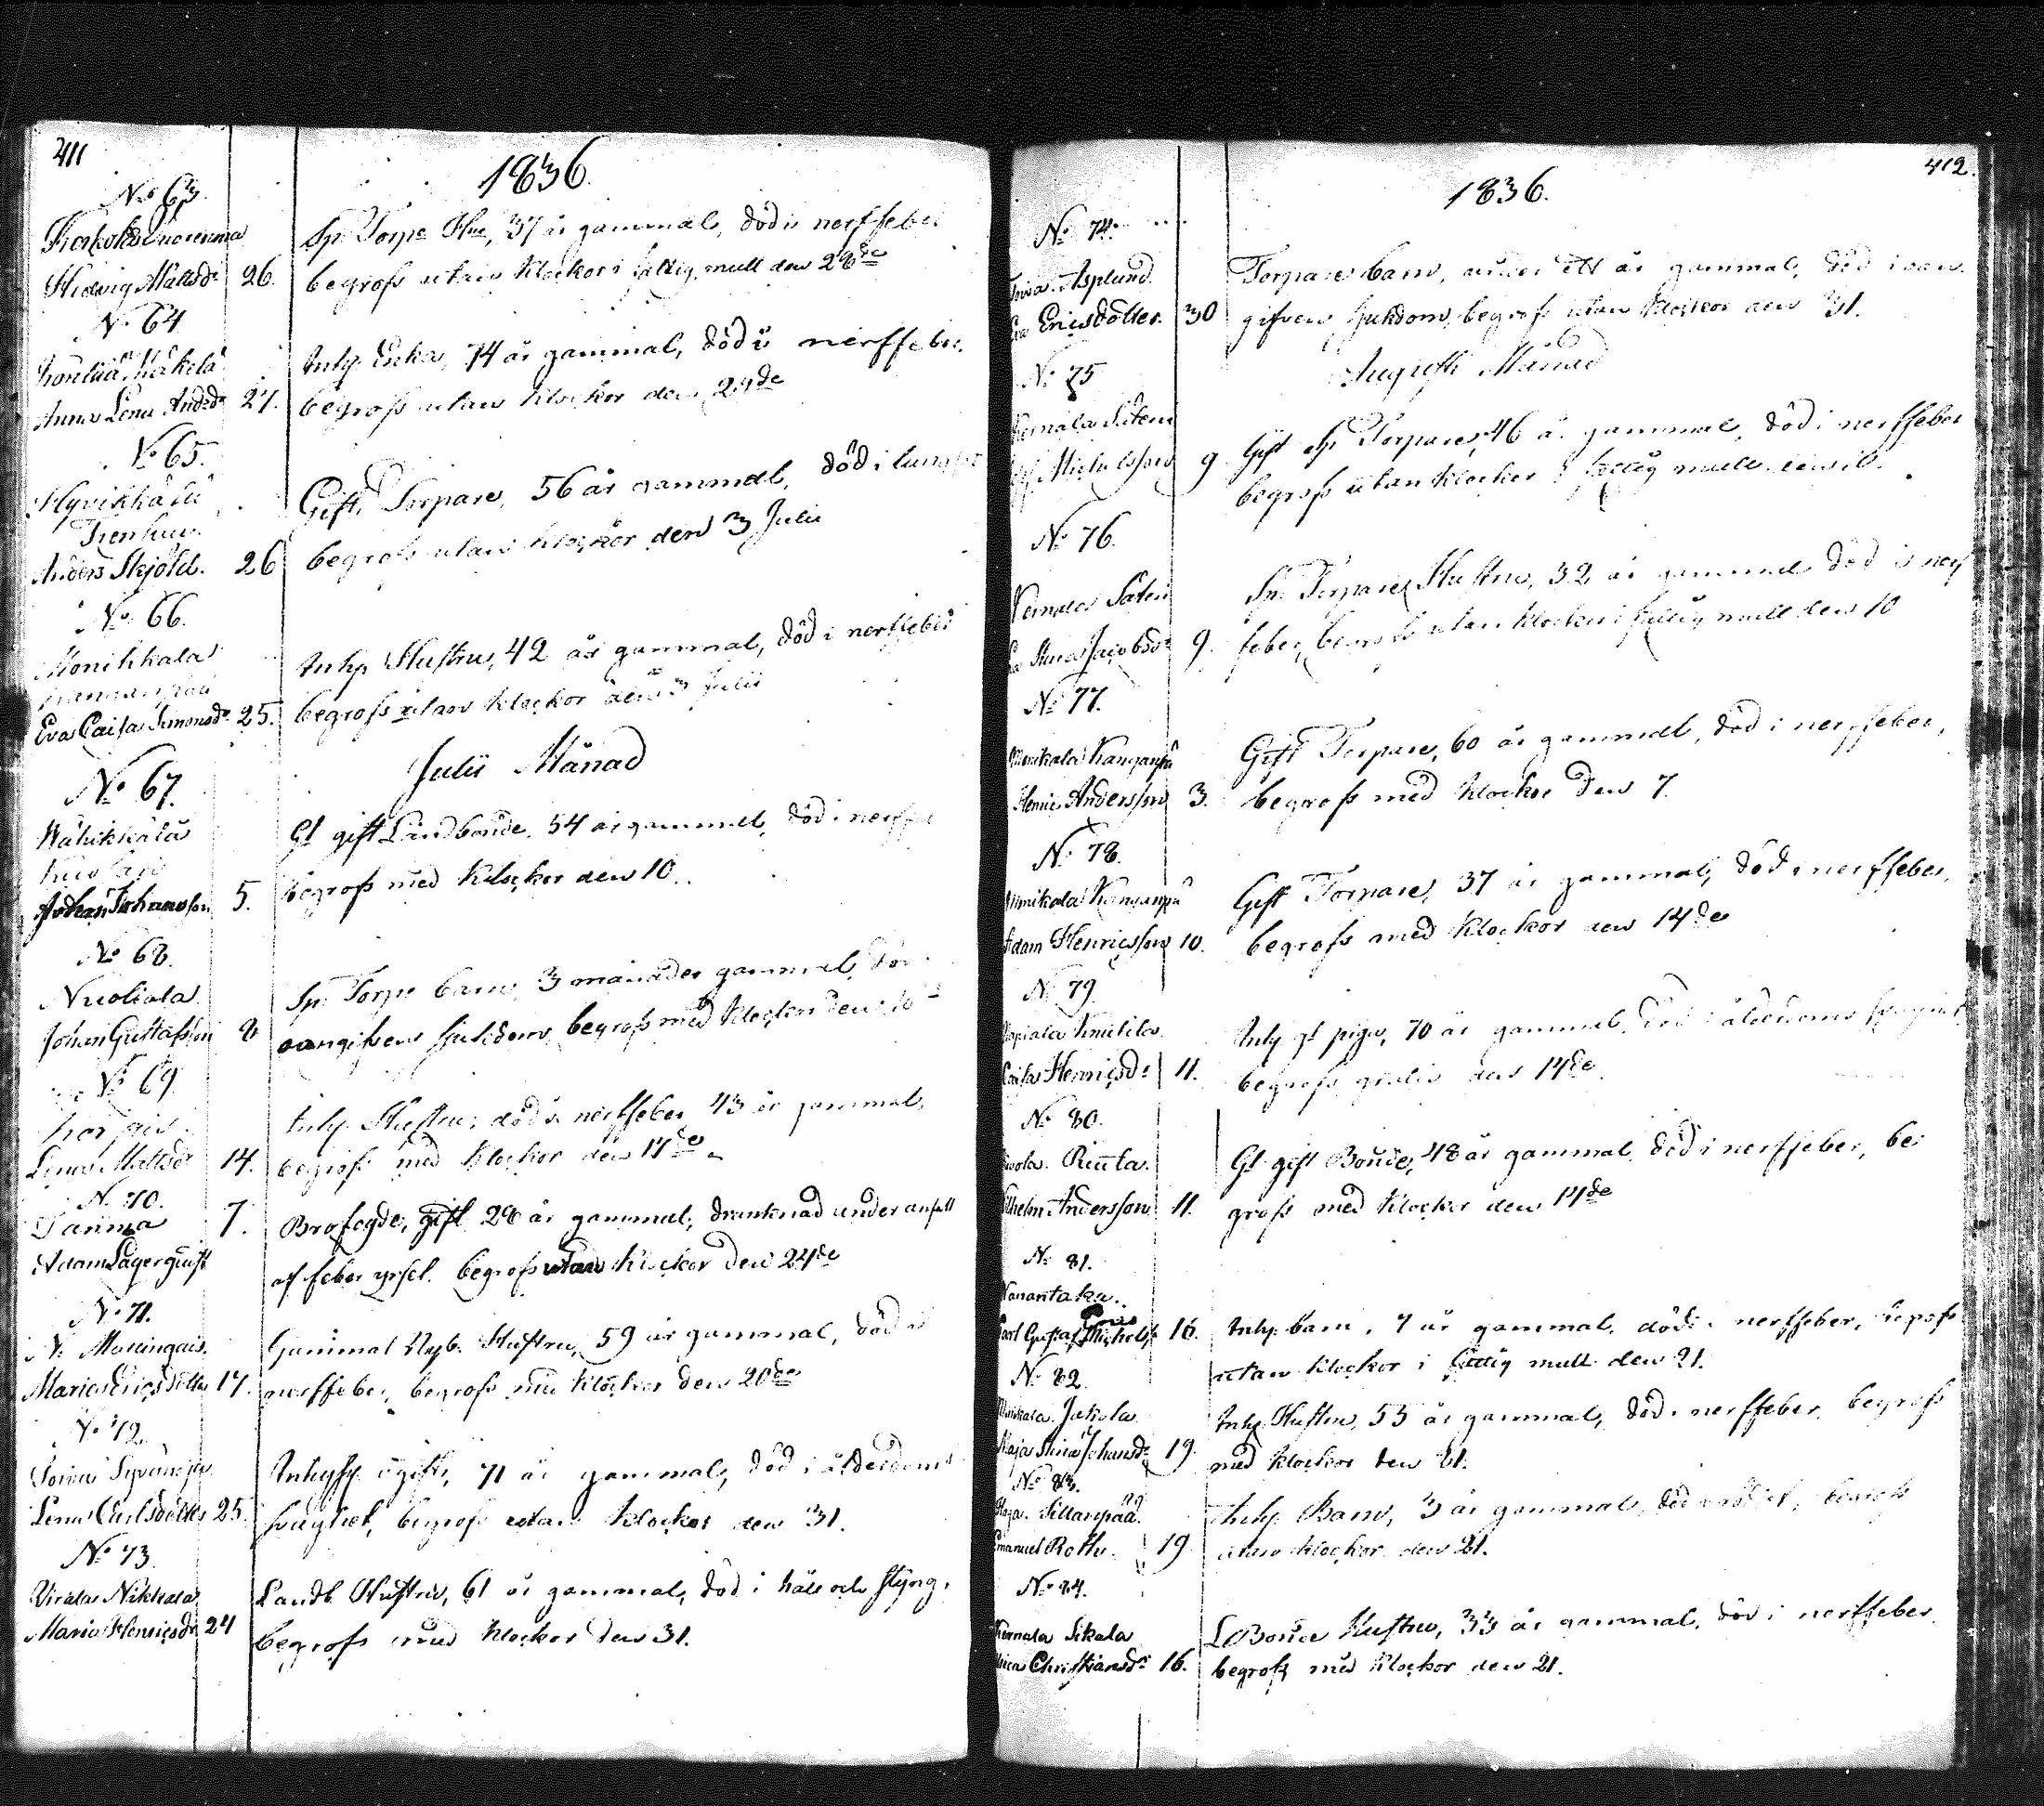 411
1836.
No 63.
Hedvig Mattsdr 26.
Sp. Torpe Hu, 37 år gammal, död i nerffeber
begrofs utan klockor i fattig mull den 28de
No 64
Mäkelä
Anna Lena Andsdr 27.
Inhy. Enka, 74 år gammal, död i nerffeber.
begrofs utan klockor den 29de
No 65.
Anders Skjöld. 26
Gift Torpare, 56 år gammal, död i lungsot
begrofs utan klockor den 3 Julii
No 66.
Monikkala
Eva Caisa Simonsdr 25.
Inhy Hustru, 42 år gammal, död i nerffeber
begrofs utan klockor den 3 Julii
Julii Månad
No 67.
Wähikkälä
Johan Johansson 5.
Gl gift Landbonde, 54 år gammal, död i nerffe
begrofs med klockor den 10.
No 68.
Nuoliala
Johan Gustafsson 8
Sp. Torpe barn 3 månader gammal, död
oangifven sjukdom, begrofs med klockor den 10
No 69.
Lena Mattsdr 14.
Inhy. Hustru, död i nerffeber 43 år gammal,
begrofs med klockor den 17de
No 70.
Tanima 7.
Adam Lagerquist
Brofogde, gift 28 år gammal, drunknad under anfall
af feber yrsel. begrofs utan klockor den 24de
No 71.
Maria Ericsdotter 17.
Gammal Nyb. Hustru, 59 år gammal, död i
nerffeber, begrofs med klockor den 20de
No 72.
Lena Carlsdotter 25.
Inhyss ogift, 71 år gammal, död i ålderdoms
svaghet, begrofs utan klockor den 31.
No 73.
Virala Nikkala
Maria Henricsdr 24
Landb. Hustru, 61 år gammal, död i håll och styng,
begrofs med klockor den 31.
412.
1836.
No 74.
Asplund.
Eva Ericsdotter. 30
Torpare barn, under ett år gammal, död i oan
gifven sjukdom, begrofs utan klockor den 31.
Augusti Månad
No 75
Kernala Säteri
Michelsson 9.
Gift Sp Torpare, 46 år gammal, död i nerffeber
begrofs utan klockor i fattig mull den 10.
No 76.
Kernala Säteri
Stina Jacobsdr 9.
Sp. Torpare Hustru, 32 år gammal död i nerf
feber, begrofs utan klockor i fattig mull den 10
No 77.
Monikala Kanganpä
Henric Andersson 3.
Gift Torpare, 60 år gammal, död i nerffeber,
begrofs med klockor den 7.
No 78.
Monikala Kanganpä
Adam Henricsson 10.
Gift Torpare, 37 år gammal, död i nerffeber,
begrofs med klockor den 14de
No 79.
Knutila
Caisa Henricsdr 11.
Inhy gl piga, 70 år gammal, död i ålderdoms svaghet
begrofs gratis den 14de
No 80.
Wilhelm Andersson 11.
Gl. gift Bonde, 48 år gammal, död i nerffeber, be
grofs med klockor den 14de
No 81.
Nanantaka.
Carl Gustaf Michelss 16.
Inhy. barn, 7 år gammal, död i nerffeber, begrofs
utan klockor i fattig mull den 21.
No 82.
Monikala Jukola
Maja Stina Johansdr 19.
Inhy. Hustru, 55 år gammal, död i nerffeber, begrofs
med klockor den 21.
No 83.
Sillanpää.
Emanuel Roth. 19
Inhy. Barn, 3 år gammal, död i begrofs
utan klockor den 21.
No 84.
Kernala Sikala
Christiansdr 16.
L Bonde Hustru, 33 år gammal, död i nerffeber.
begrofs med klockor den 21.